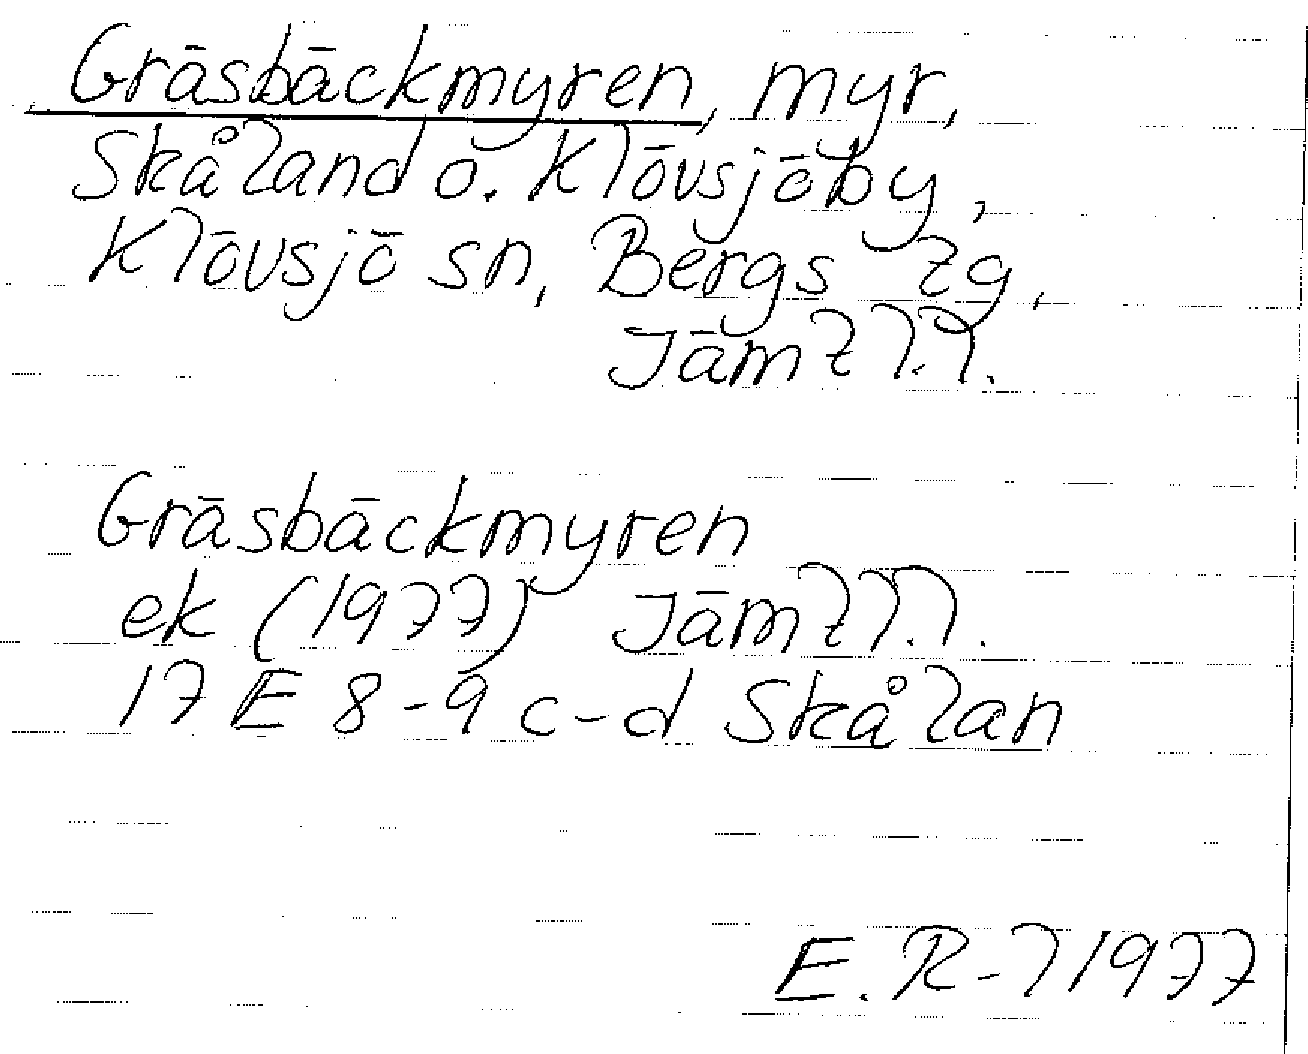 Gräsbäckmyren, myr,
Skåland o. Klövsjöby,
Klövsjö sn, Bergs tg,
Jämtl.l.
Gräsbäckmyren
ek (1977) Jämtl.l.
17 E 8-9 c-d Skålan
E. R-l 1977